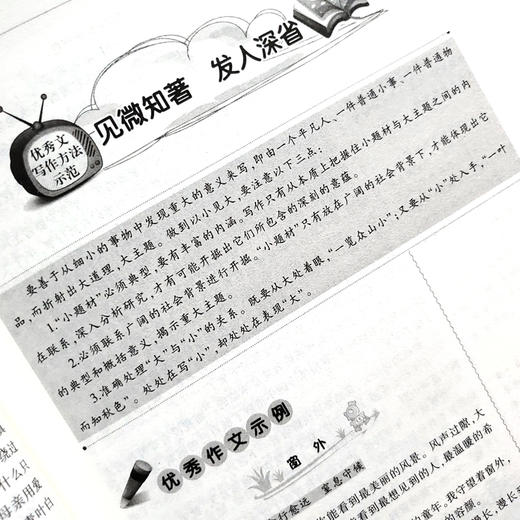 见微知著 发人深省
优秀文
写作方法
示范
要善于从细小的事物中发现重大的意义来写，即由一个平凡人、一件普通小事、一件普通物
品，而折射出大道理，大主题。做到以小见大，要注意以下三点：
1.“小题材”必须典型，要有丰富的内涵。写作只有从本质上把握住小题材与大主题之间的内
在联系，深入分析研究，才有可能开掘出它们所包含的深刻的意蕴。
2.必须联系广阔的社会背景进行开掘。“小题材”只有放在广阔的社会背景下，才能体现出它
的典型和概括意义，揭示重大主题。
3.准确处理“大”与“小”的关系。既要从大处着眼，“一览众山小”；又要从“小”处入手，“一叶
而知秋色”。处处在写“小”，却处处在表现“大”。
优秀作文示例
窗外
能看到最美丽的风景。风声过隙，大
看到最想见到的人，最温暖的希
的童年。我守望着窗外，
的容颜。
漫长
绕过
什么只
母亲用爱
叶白